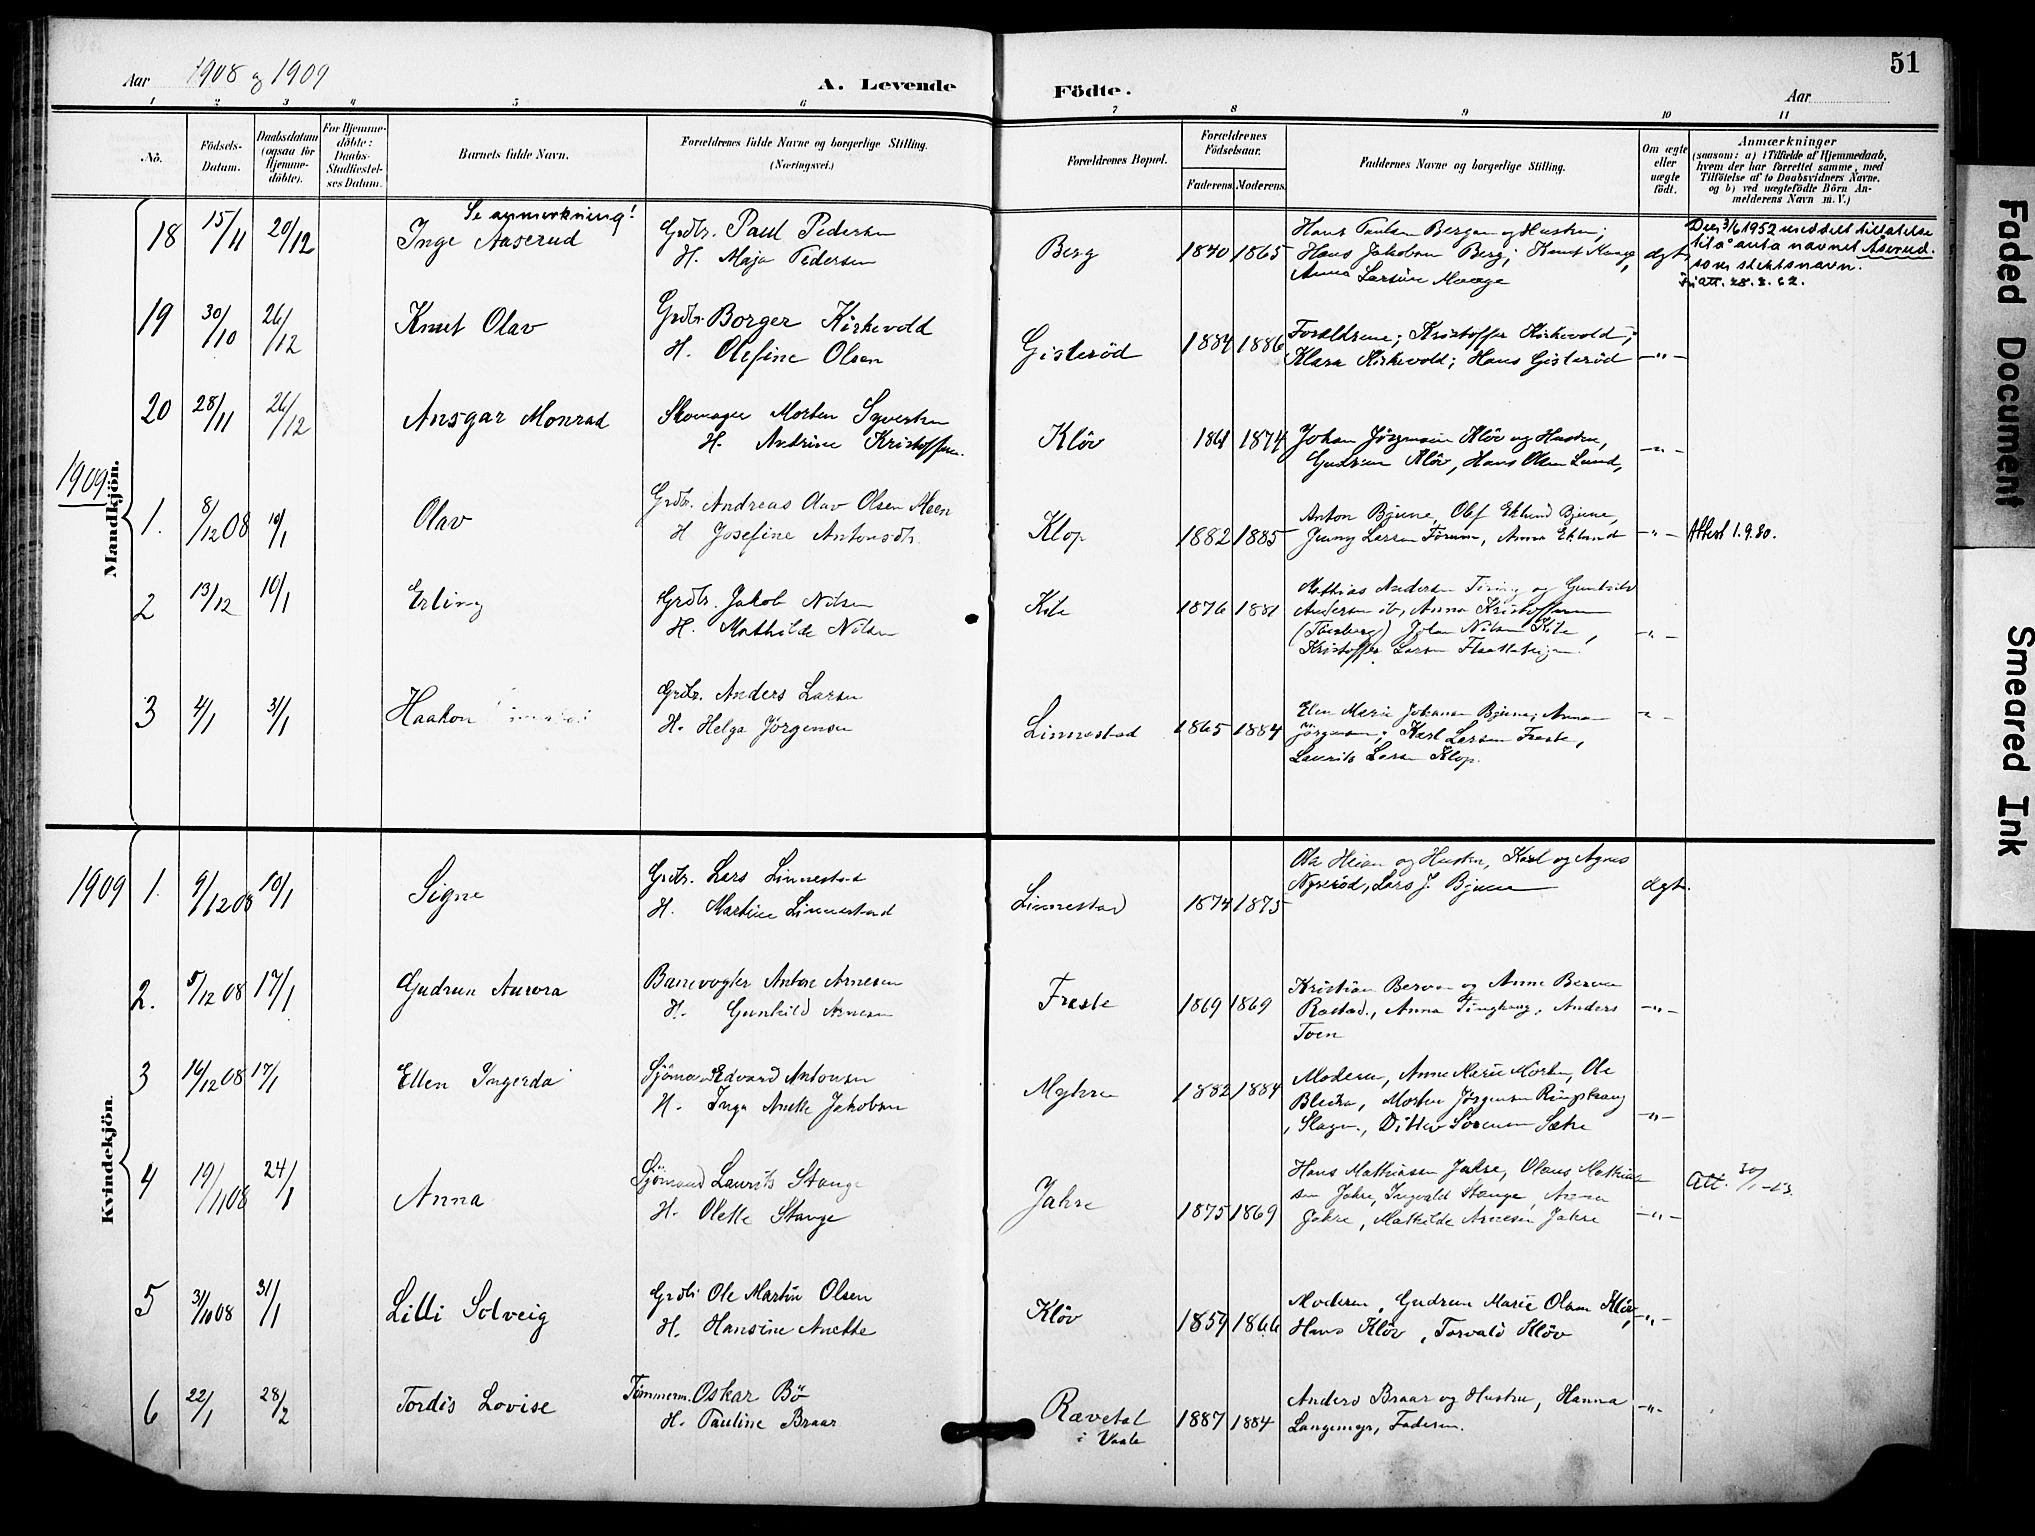 51
Aar 1908 og 1909
A. Levende Födte.
Aar
1 2 3 4 5 6 7 8 9 10 11
No.
Födsels-Datum.
Daabsdatum (ogsaa for Hjemme-döbte).
For Hjemme-döbte: Daabs-Stadfæstel-ses Datum.
Barnets fulde Navn.
Forældrenes fulde Navne og borgerlige Stilling.
(Næringsvei.)
Forældrenes Bopæl.
Forældrenes Födselsaar.
Faderens. Moderens.
Faddernes Navne og borgerlige Stilling.
Om ægte eller uægte födt.
Anmærkninger
(saasom: a) i Tilfælde af Hjemmedaab, hvem der har forrettet samme, med Tilföielse af to Daabsvidners Navne. og b) ved uægtefödte Börn An-melderens Navn m. V.)
Mandkjön.
Se anmerkning!
18 15/11 20/12 Inge Aaserud
Grdbr. Paul Pedersen
H. Maja Pedersen
Berg 1840 1865
Hans Paulsen Bergan og Hustru;
Hans Jakobsen Berg; Knut Kaage,
Anna Larsine Kaage
dgt.
Den 3/6 1952 meddelt tillatelse
til å anta navnet Åserud
som slektsnavn.
att. 28.8.62.
19 30/10 26/12 Knut Olav
Grdbr. Borger Kirkevold
H. Olefine Olsen
Gisteröd 1884 1886
Forældrene; Kristoffer Kirkevold;
Klara Kirkevold; Hans Gisteröd
-"-
20 28/11 26/12 Ansgar Monrad
Skomager Morten Syvertsen
H. Andrine Kristoffersen.
Klöv 1861 1874
Johan Jörgensen Klöv og Hustru,
Gudrun Klöv, Hans Olsen Lund,
-"-
1909
1. 8/12 08 10/1 Olav
Grdbr. Andreas Olav Olsen Meen
H. Josefine Antonsdtr.
Klop 1882 1885
Anton Bjune, Olef Eklund Bjune,
Jenny Larsen, Anna Eklund
-"- Attest 1.9.80.
2 13/12 10/1 Erling
Grdbr. Jakob Nilsen
H. Mathilde Nilsen
Kile 1876 1881
Mathias Andersen og Gunhild
Andersen ib, Anna Kristoffersen
(Tönsberg) Johan Nilsen Kile,
Kristoffer Larsen
-"-
3 4/1 31/1 Haakon
Grdbr. Anders Larsen
H. Helga Jörgensen
Linnestad 1865 1884
Elen Marie Johansen Bjune; Anna
Jörgensen; Karl Larsen Freste,
Laurits Larsen Klop.
-"-
Kvindekjön.
1909 1. 9/12 08 10/1 Signe
Grdbr. Lars Linnestad
H. Martine Linnestad
Linnestad 1874 1875
Ole Heian og Hustru, Karl og Agnes
Nyseröd, Lars J. Bjune
dgt.
2. 5/12 08 17/1 Gudrun Aurora
Banevogter Anton Arnesen
H. Gunhild Arnesen
Freste 1869 1869
Kristian Berven og Anne Berven
Rostad., Anna, Anders
Toen
-"-
3 16/12 08 17/1 Ellen Ingerda
Sjömand Edvard Antonsen
H. Inga Anette Jakobsen
Myhre 1882 1884
Moderen, Anne Marie Morten, Ole
Bleika, Morten Jörgensen Ringshaug
, Slagn., Ditlev Sörensen Sætre
-"-
4 19/11 08 24/1 Anna
Sjömand Laurits Stange
H. Olette Stange
Jahre 1875 1869
Hans Mathiasen Jahre, Olaus Mathia-
sen Jahre, Ingvald Stange, Anna
Jahre, Mathilde Arnesen Jahre
-"- Att.
5 31/10 08 31/1 Lilli Solveig
Grdbr Ole Martin Olsen
H. Hansine Anette
Klöv 1859 1866
Moderen, Gudrun Marie Olsen Klöv,
Hans Klöv, Torvald Klöv
-"-
6 22/1 28/2 Tordis Lovise
Tömmerm. Oskar Bö
H. Pauline Braar
Rævetal
i Vaale
1887 1884
Anders Braar og Hustru, Hanna
Langemyr, Faderen.
-"-
Faded Document
Smeared Ink